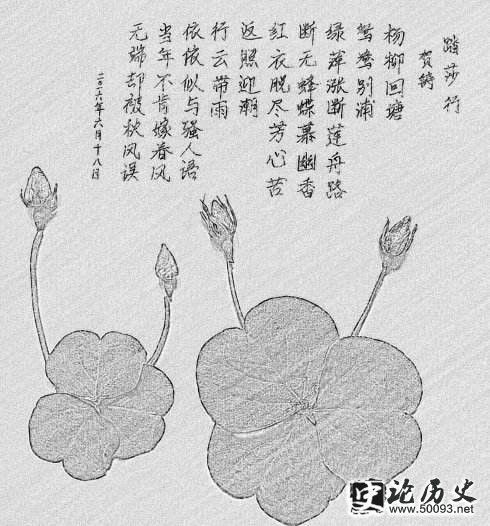 踏莎行
贺铸
杨柳回塘
鸳鸯别浦
绿萍涨断莲舟路
断无蜂蝶慕幽香
红衣脱尽芳心苦
返照迎潮
行云带雨
依依似与骚人语
当年不肯嫁春风
无端却被秋风误
二零一六年六月十八日
论历史
www.50093.net